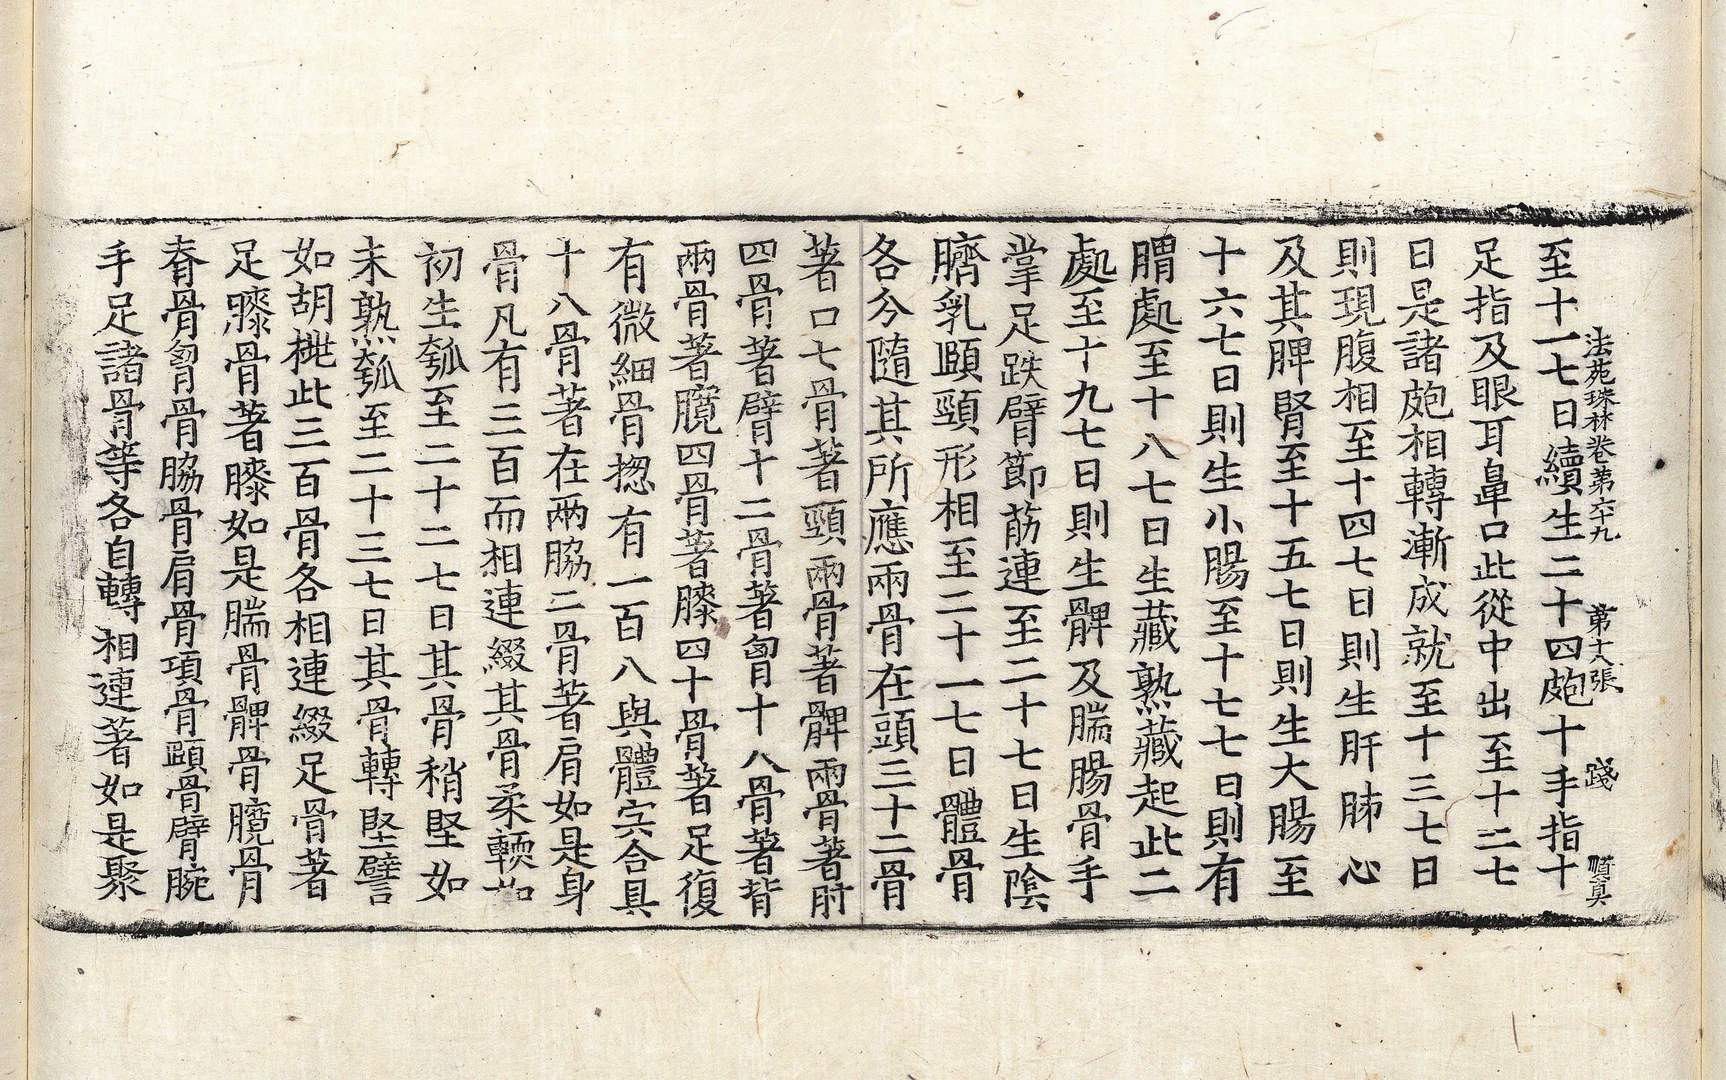 法苑珠林卷第六十九 第十八張 踐
至十一七日續生二十四皰十手指十
足指及眼耳鼻口此從中出至十二七
日是諸皰相轉漸成就至十三七日
則現腹相至十四七日則生肝肺心
及其脾腎至十五七日則生大腸至
十六七日則生小腸至十七七日則有
胃處至十八七日生藏熟藏起此二
處至十九七日則生髀及腨腸骨手
掌足趺臂節筋連至二十七日生陰
臍乳頤頸形相至二十一七日體骨
各分隨其所應兩骨在頭三十二骨
著口七骨著頸兩骨著髀兩骨著肘
四骨著臂十二骨著胷十八骨著背
兩骨著臗四骨著膝四十骨著足復
有微細骨揔有一百八與體宍合具
十八骨著在兩脇二骨著肩如是身
骨凡有三百而相連綴其骨柔輭如
初生瓠至二十二七日其骨稍堅如
未熟瓠至二十三七日其骨轉堅譬
如胡桃此三百骨各相連綴足骨著
足膝骨著膝如是腨骨髀骨臗骨
脊骨胷骨脇骨肩骨項骨頤骨臂腕
手足諸骨等各自轉相連著如是聚